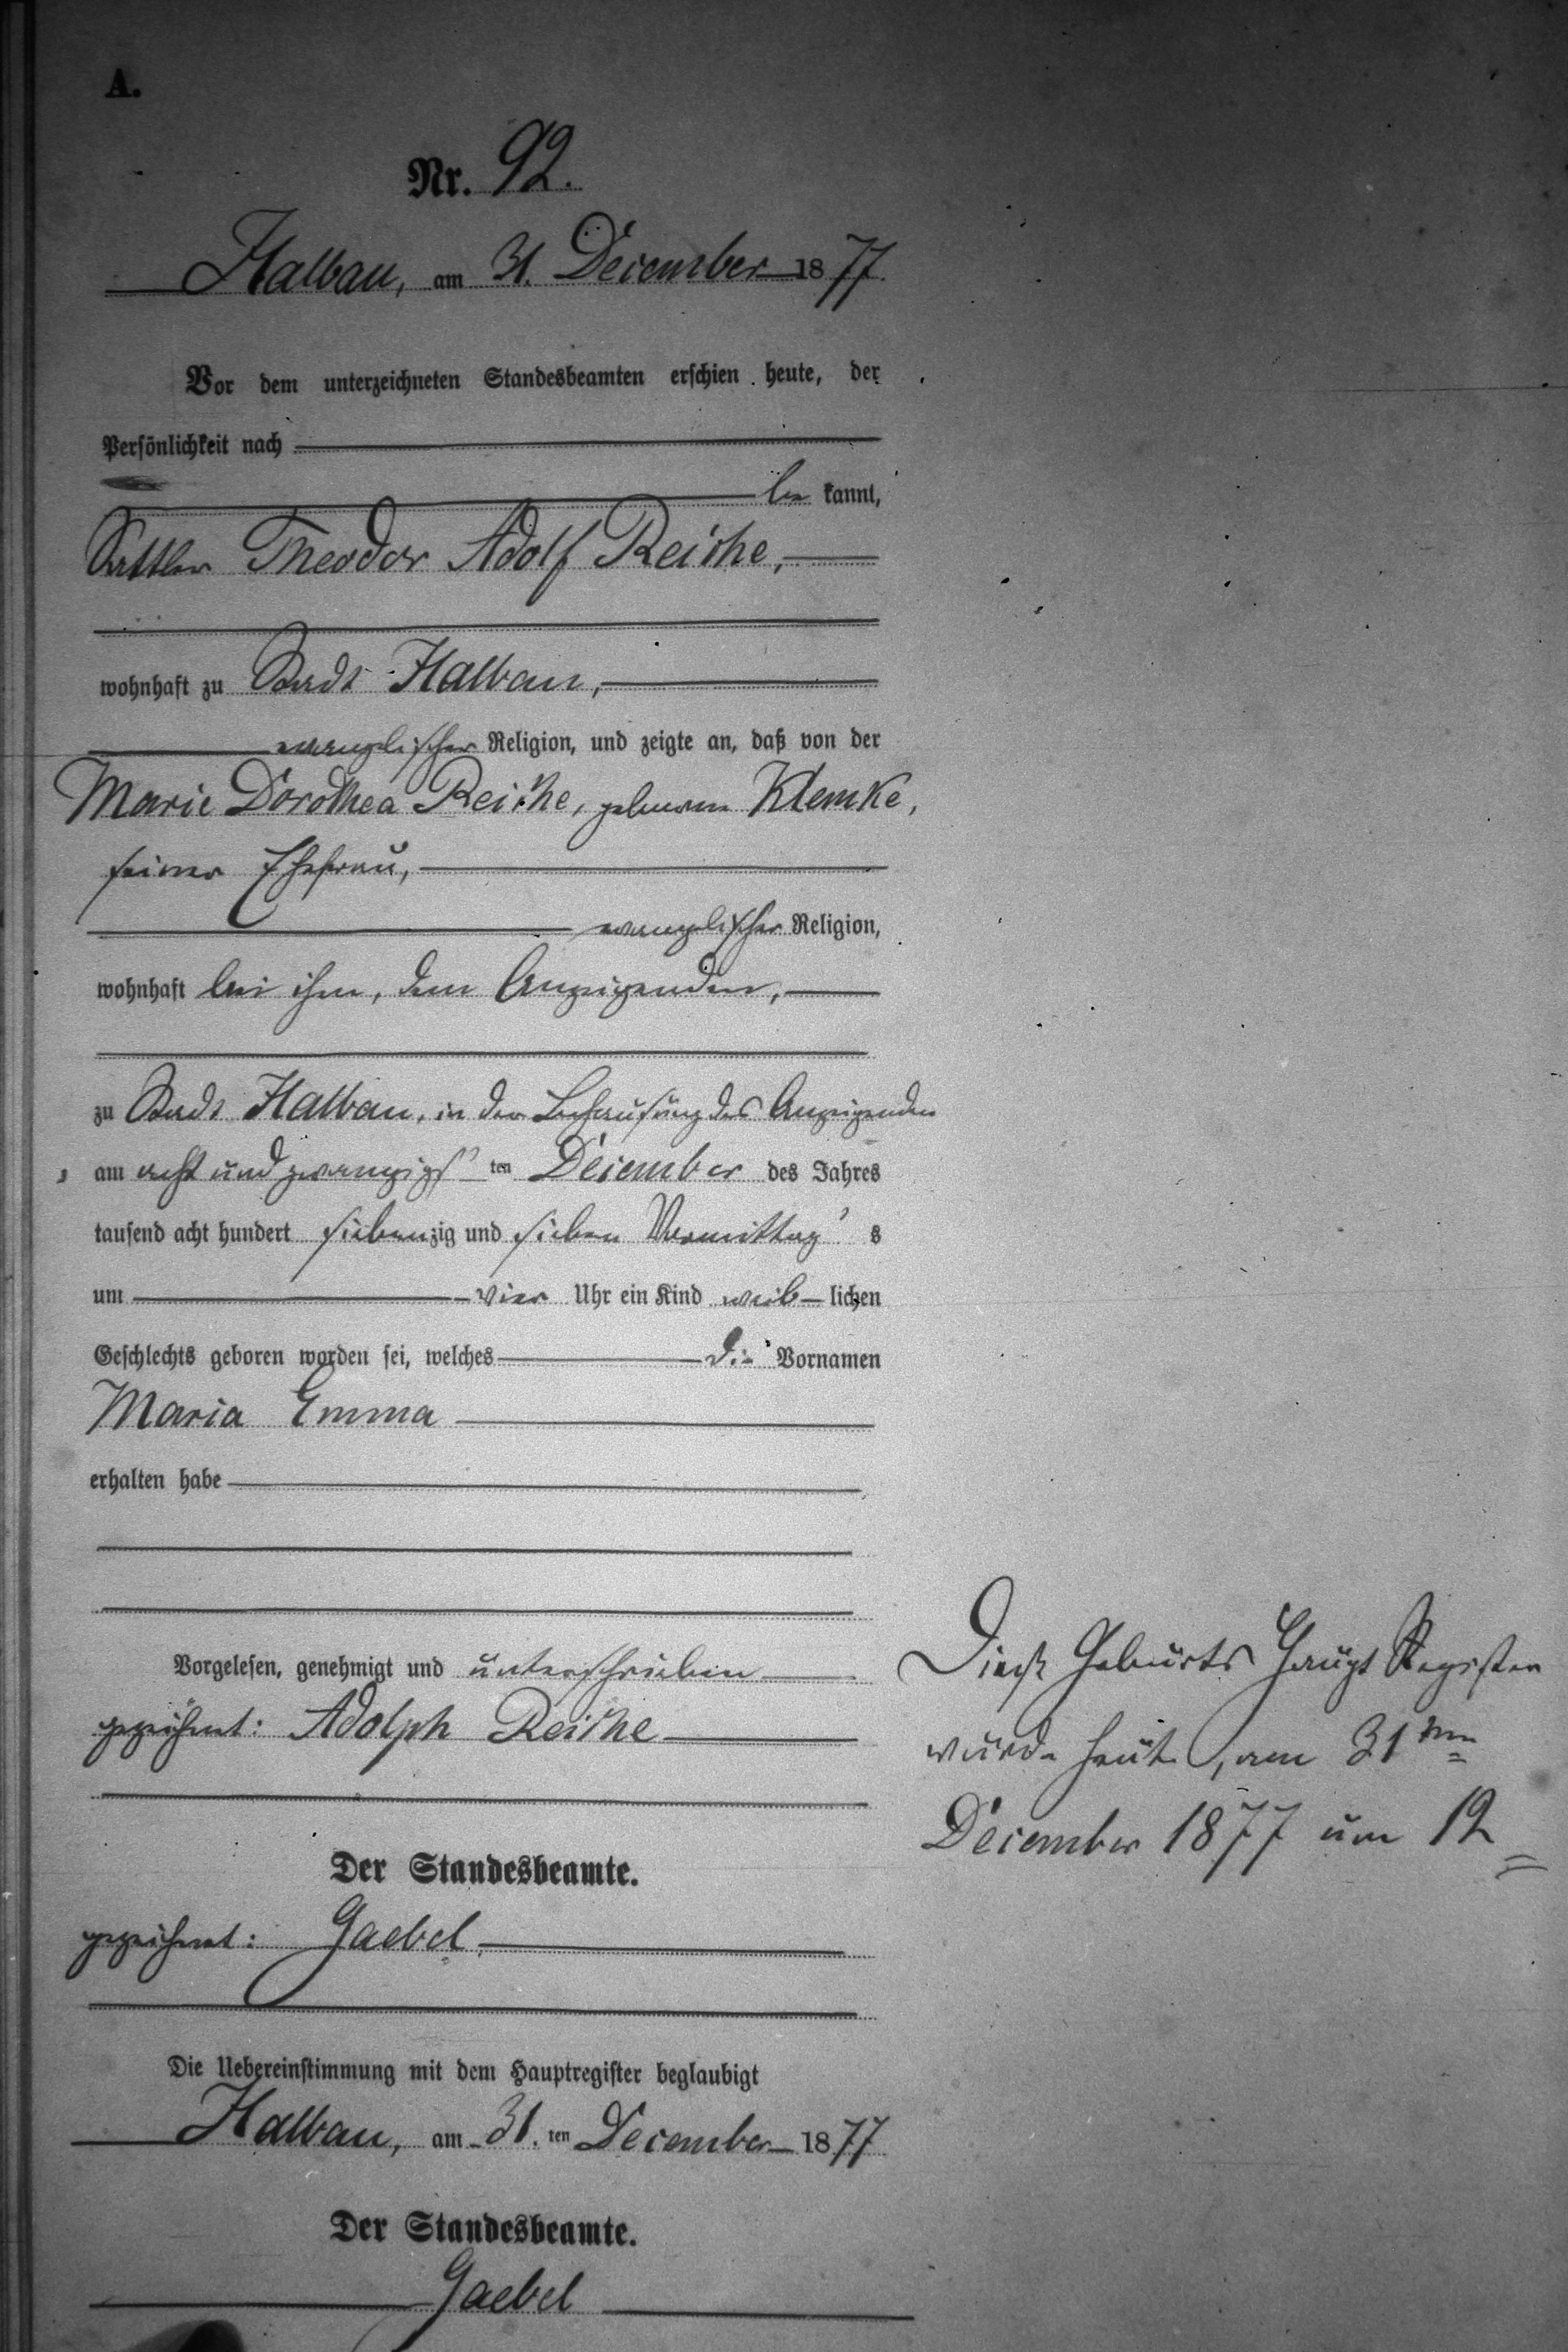 A.
Nr. 92.
Halbau, am 31. December 1877.
Vor dem unterzeichneten Standesbeamten erschien heute, der
Persönlichkeit nach
be kannt,
Sattler Theodor Adolf Reiche,
wohnhaft zu Stadt Halbau,
evangelischer Religion, und zeigte an, daß von der
Marie Dorothea Reiche, geborene Klemke,
seiner Ehefrau,
evangelischer Religion,
wohnhaft bei ihm, dem Anzeigenden,
zu Stadt Halbau, in der Behausung des Anzeigenden
am acht und zwanzigs ten December des Jahres
tausend acht hundert siebenzig und sieben Vormittag s
um vier Uhr ein Kind weib lichen
Geschlechts geboren worden sei, welches die Vornamen
Maria Emma
erhalten habe
Vorgelesen, genehmigt und unterschrieben
gezeichnet: Adolph Reiche
Der Standesbeamte.
gezeichnet: Gaebel.
Die Uebereinstimmung mit dem Hauptregister beglaubigt
Halbau, am 31. ten December 1877
Der Standesbeamte.
Gaebel
Geburts Haupt Register
wurde heute, am 31ten
December 1877 um 12